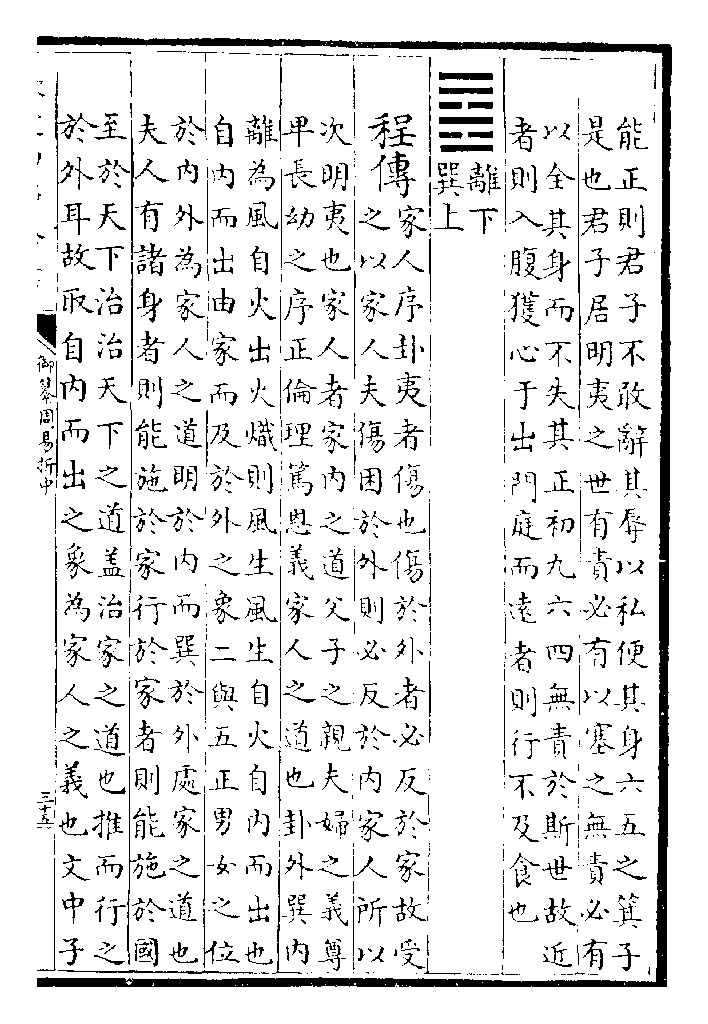 能正則君子不敢辭其辱以私便其身六五之箕子
是也君子居明夷之世有責必有以塞之無責必有
以全其身而不失其正初九六四無責於斯世故近
者則入腹獲心于出門庭而遠者則行不及食也
離下
巽上
程傳
家人序卦夷者傷也傷於外者必反於家故受
之以家人夫傷困於外則必反於内家人所以
次明夷也家人者家内之道父子之親夫婦之義尊
卑長幼之序正倫理篤恩義家人之道也卦外巽内
離為風自火出火熾則風生風生自火自内而出也
自内而出由家而及於外之象二與五正男女之位
於内外為家人之道明於内而巽於外處家之道也
夫人有諸身者則能施於家行於家者則能施於國
至於天下治治天下之道盖治家之道也推而行之
於外耳故取自内而出之象為家人之義也文中子
御纂周易折中
三十五